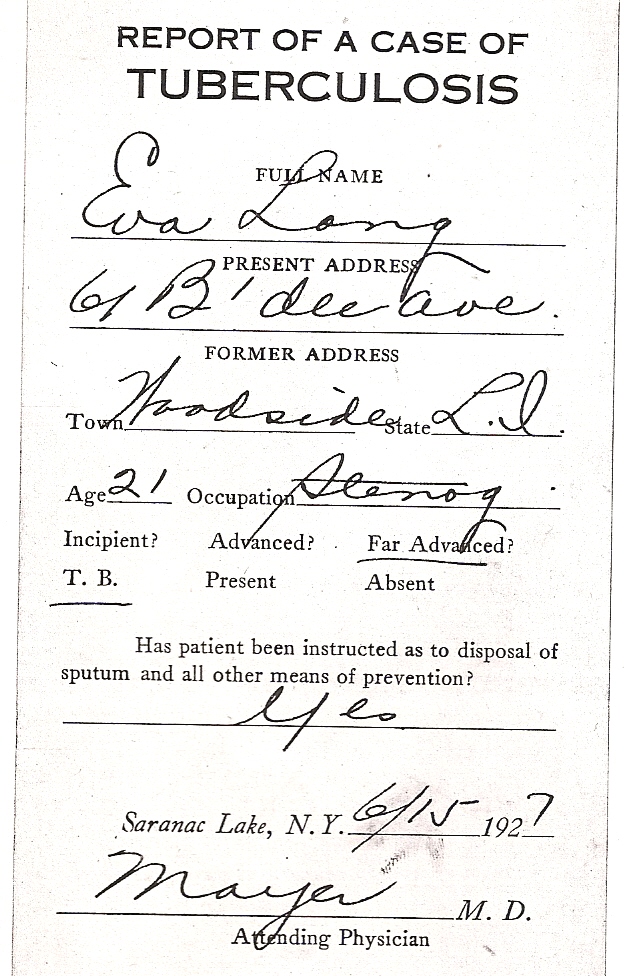 REPORT OF A CASE OF
TUBERCULOSIS
FULL NAME
Eva Long
PRESENT ADDRESS
61 B'dee Ave.
FORMER ADDRESS
Town Woodside State L.I.
Age 21 Occupation Stenog
Incipient? Advanced? Far Advanced?
T. B. Present Absent
Has patient been instructed as to disposal of
sputum and all other means of prevention?
Yes
Saranac Lake, N.Y. 6/15 1927
Mayer M. D.
Attending Physician